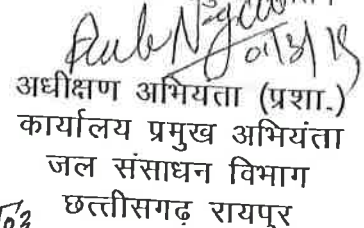 01/3/19
अधीक्षण अभियता (प्रशा.)
कार्यालय प्रमुख अभियंता
जल संसाधन विभाग
छत्तीसगढ़ रायपुर